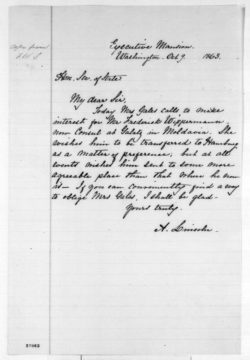 Executive Mansion,
Washington, Oct. 9, 1863.
Hon. Sec. of State
My dear Sir,
Today Mrs. Gales calls to make
interest for Mr. Frederick Wippermann
now Consul at Galatz in Moldavia. She
wishes him to be transferred to Hamburg
as a matter of preference; but at all
events wishes him sent to some more
agreeable place than that where he now
is— If you can conveniently find a way
to oblige Mrs Gales, I shall be glad.
Yours truly
A. Lincoln.